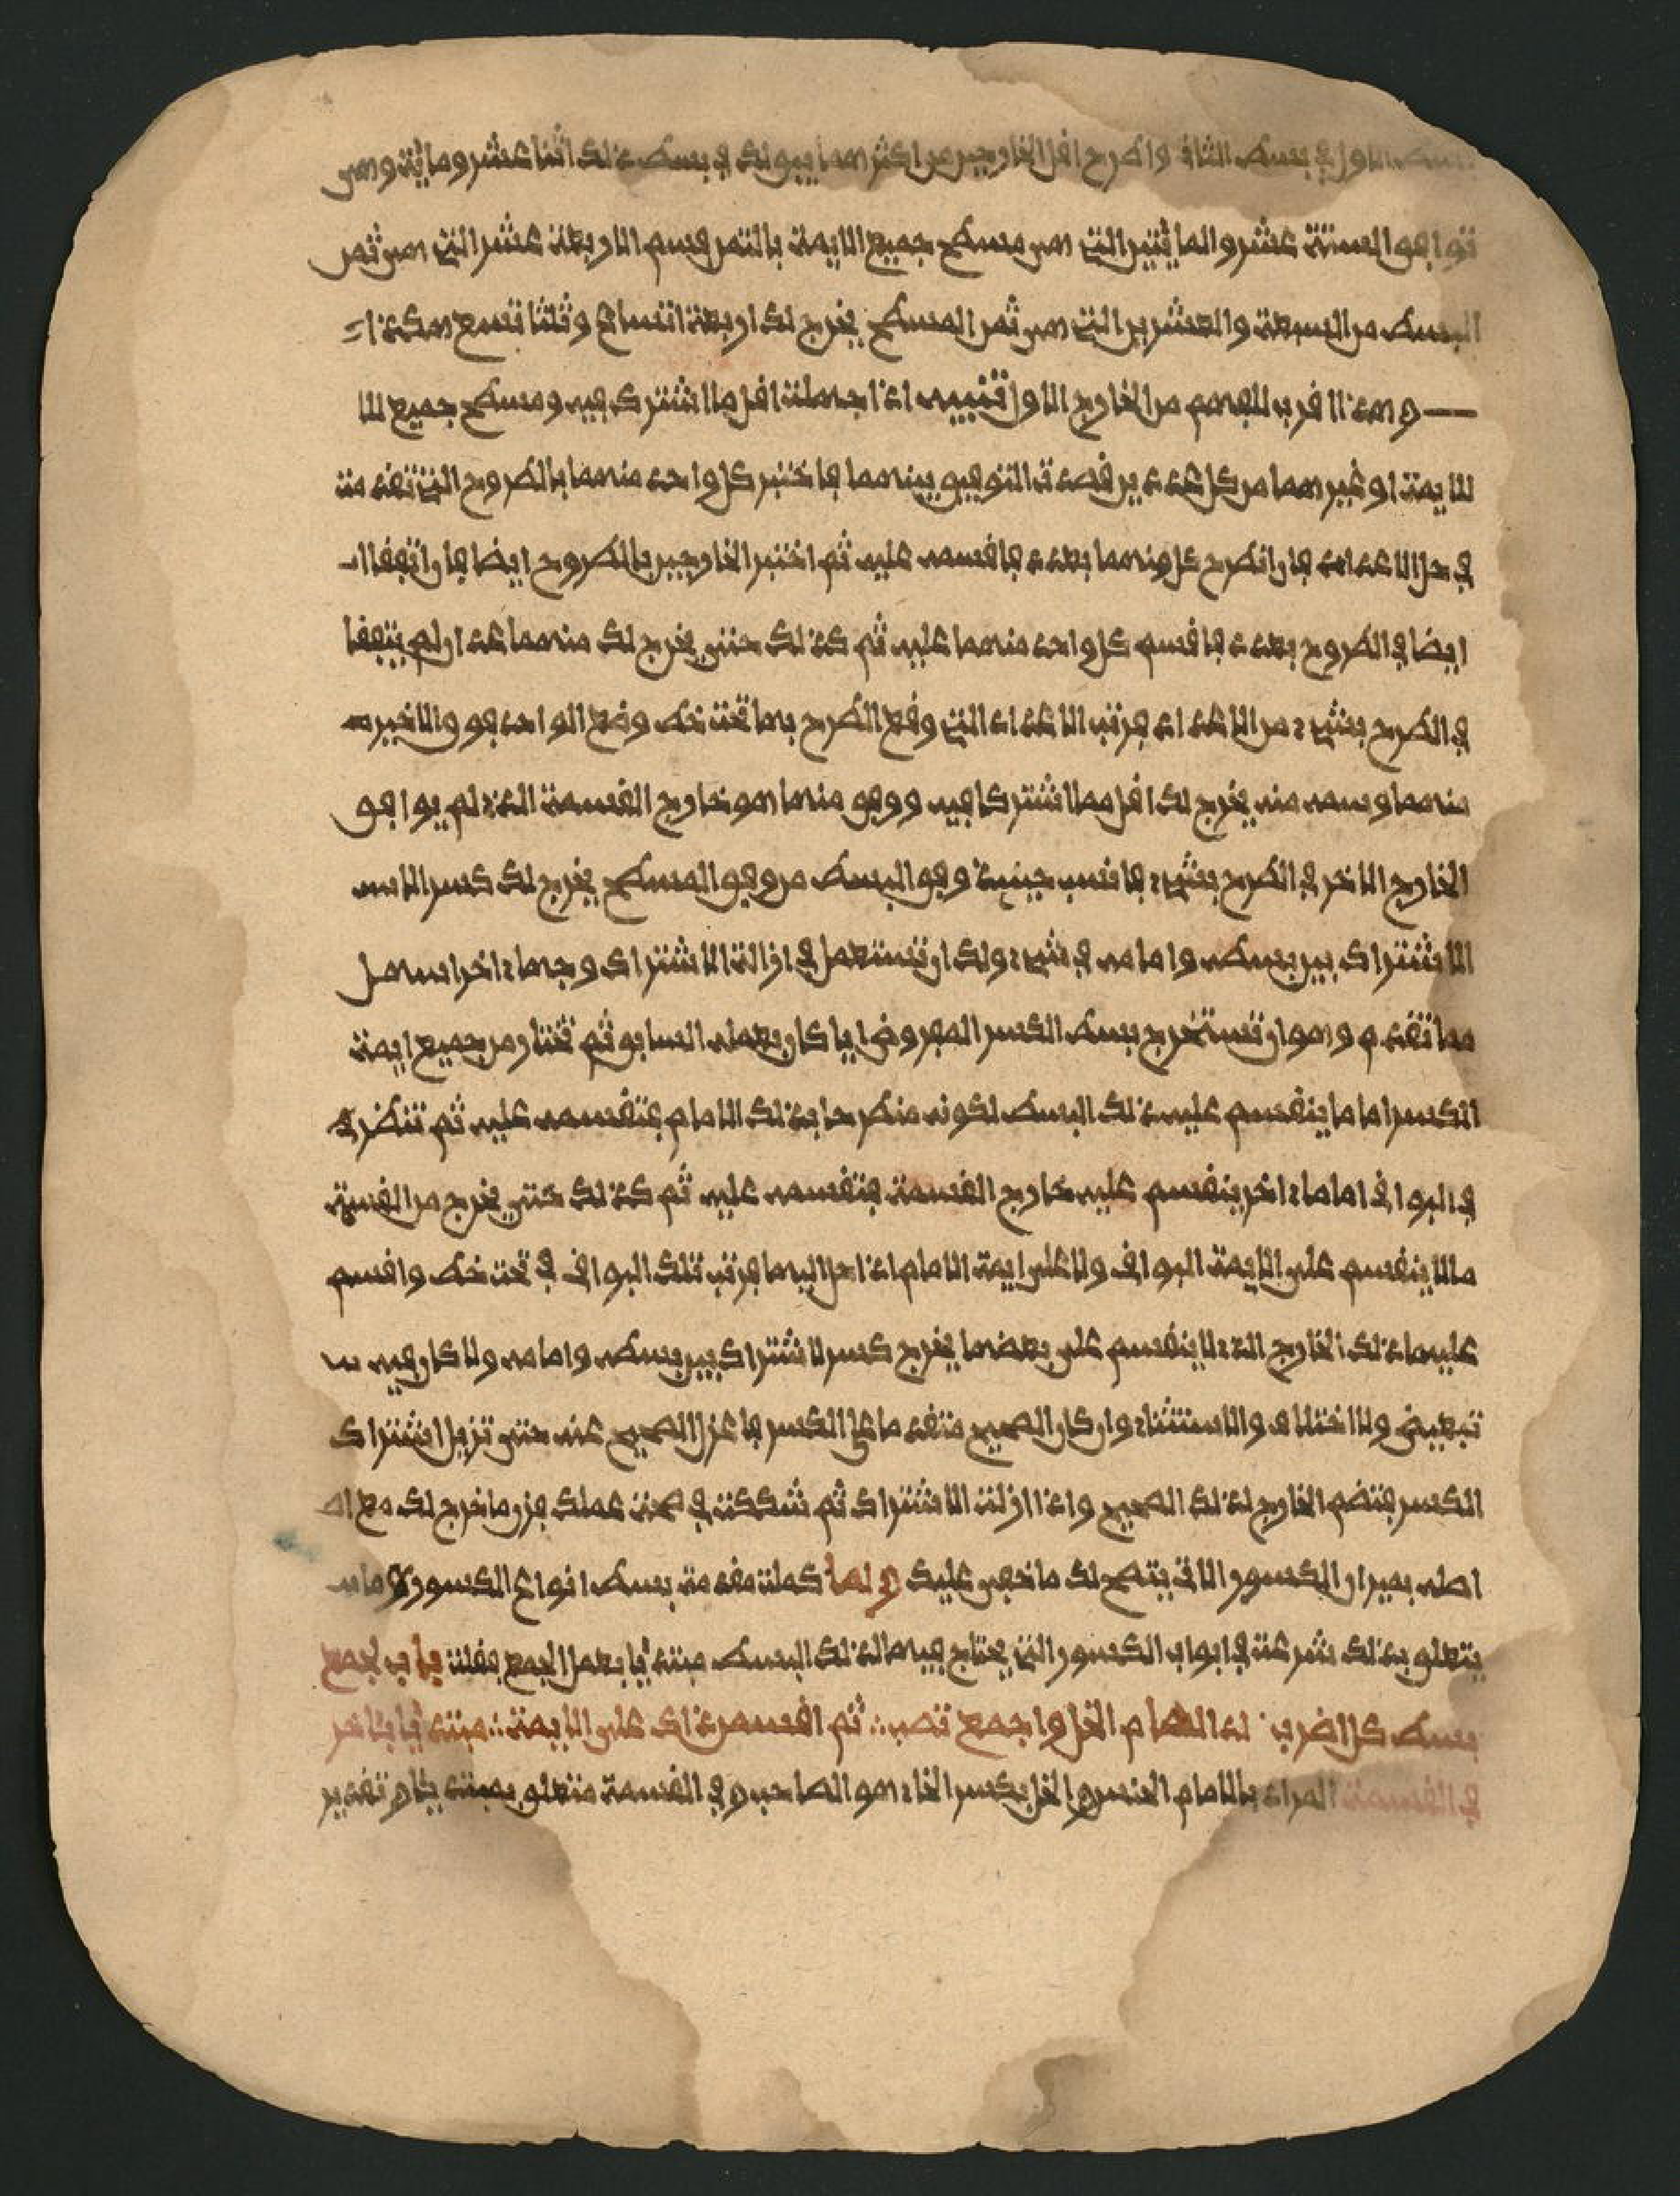 بسط الاول في بسط الثاني واطرح اقل الخارجين من اكثرهما يبق لك في بسط ذلك اثنا عشر ومائة وهي
توافق الستة عشر والمايتين التي هي مسطح جميع الايمة بالثمن فسم الاربعة عشر التي هي ثمن
البسط من السبعة والعشرين التي هي ثمن المسطح يخرج لك اربعة اتساع وثلثا تسع هكذا
وهذا اقرب للفهم من الخارج الاول تنبيه اذا جهلت اقل ما اشترك فيه ومسطح جميع الا
لايمة او غيرهما من كل عددين قصدت التوفيق بينهما فاختبر كل واحد منهما بالطروح التي تقدمت
في حل الاعداد فان انطرح كل منهما بعدد فاقسمه عليه ثم اختبر الخارجين بالطروح ايضا فان اتفقا
ايضا في الطروح بعدد فاقسم كل واحد منهما عليه ثم كذلك حتى يخرج لك منهما عددان لم يتفقا
في الطرح بشيء من الاعداد فرتب الاعداد التي وقع الطرح بها تحت خط وضع الواحد فوق والاخير
منهما وسمه منه يخرج لك اقل مما اشتركا فيه ووفق منها هو خارج القسمة الذي لم يوافق
الخارج الاخر في الطرح بشيء فانسب حينئذ وفق البسط من وفق المسطح يخرج لك كسر
الاشتراك بين بسطه وامامه في شيء ولك ان تستعمل في ازالة الاشتراك وجها ءاخر اسهل
مما تقدم وهو ان تستخرج بسط الكسر المفروض ايا كان بعمله السابق ثم تختار من جميع ايمة
الكسر اماما ينقسم عليه ذلك البسط لكونه منطرحا بذلك الامام فتقسمه عليه ثم تنظر في
في البواقي اماما ءاخر ينقسم عليه خارج القسمة فتقسمه عليه ثم كذلك حتى يخرج من القسمة
ما لا ينقسم على الايمة البواقي ولا على ايمة الامام اذا حل اليها فرتب تلك البواقي في تحت خط واقسم
عليها ذلك الخارج الذي لا ينقسم على بعضها يخرج كسر لا اشتراك بين بسطه وامامه ولا كان فيه
تبعيض ولا اختلاف والاستثناء وان كان الصحيح متقدما على الكسر فاعزل الصحيح عنه حتى تزيل اشتراك
الكسر فتضم الخارج لذلك الصحيح واذا ازلت الاشتراك ثم شككت في صحة عملك فزن ما خرج لك مع
اصله بميزان الكسور الاتي يتضح لك ما خفي عليك ولما كملت مقدمة بسط انواع الكسور وما
يتعلق بذلك شرعت في ابواب الكسور التي يحتاج فيها لذلك البسط مبتدئا بعمل الجمع فقلت باب لجمع
بسط كل اضرب لدا الهمام الخل واجمع تصب ∴ ثم اقسمن ذاك على الايمة ∴ مبتدئا بئاخر
في القسمة المراد بالامام الجنس والخل بكسر الخاء هو الصاحب وفي القسمة متعلق بمبتدئ بئاخر تقدير